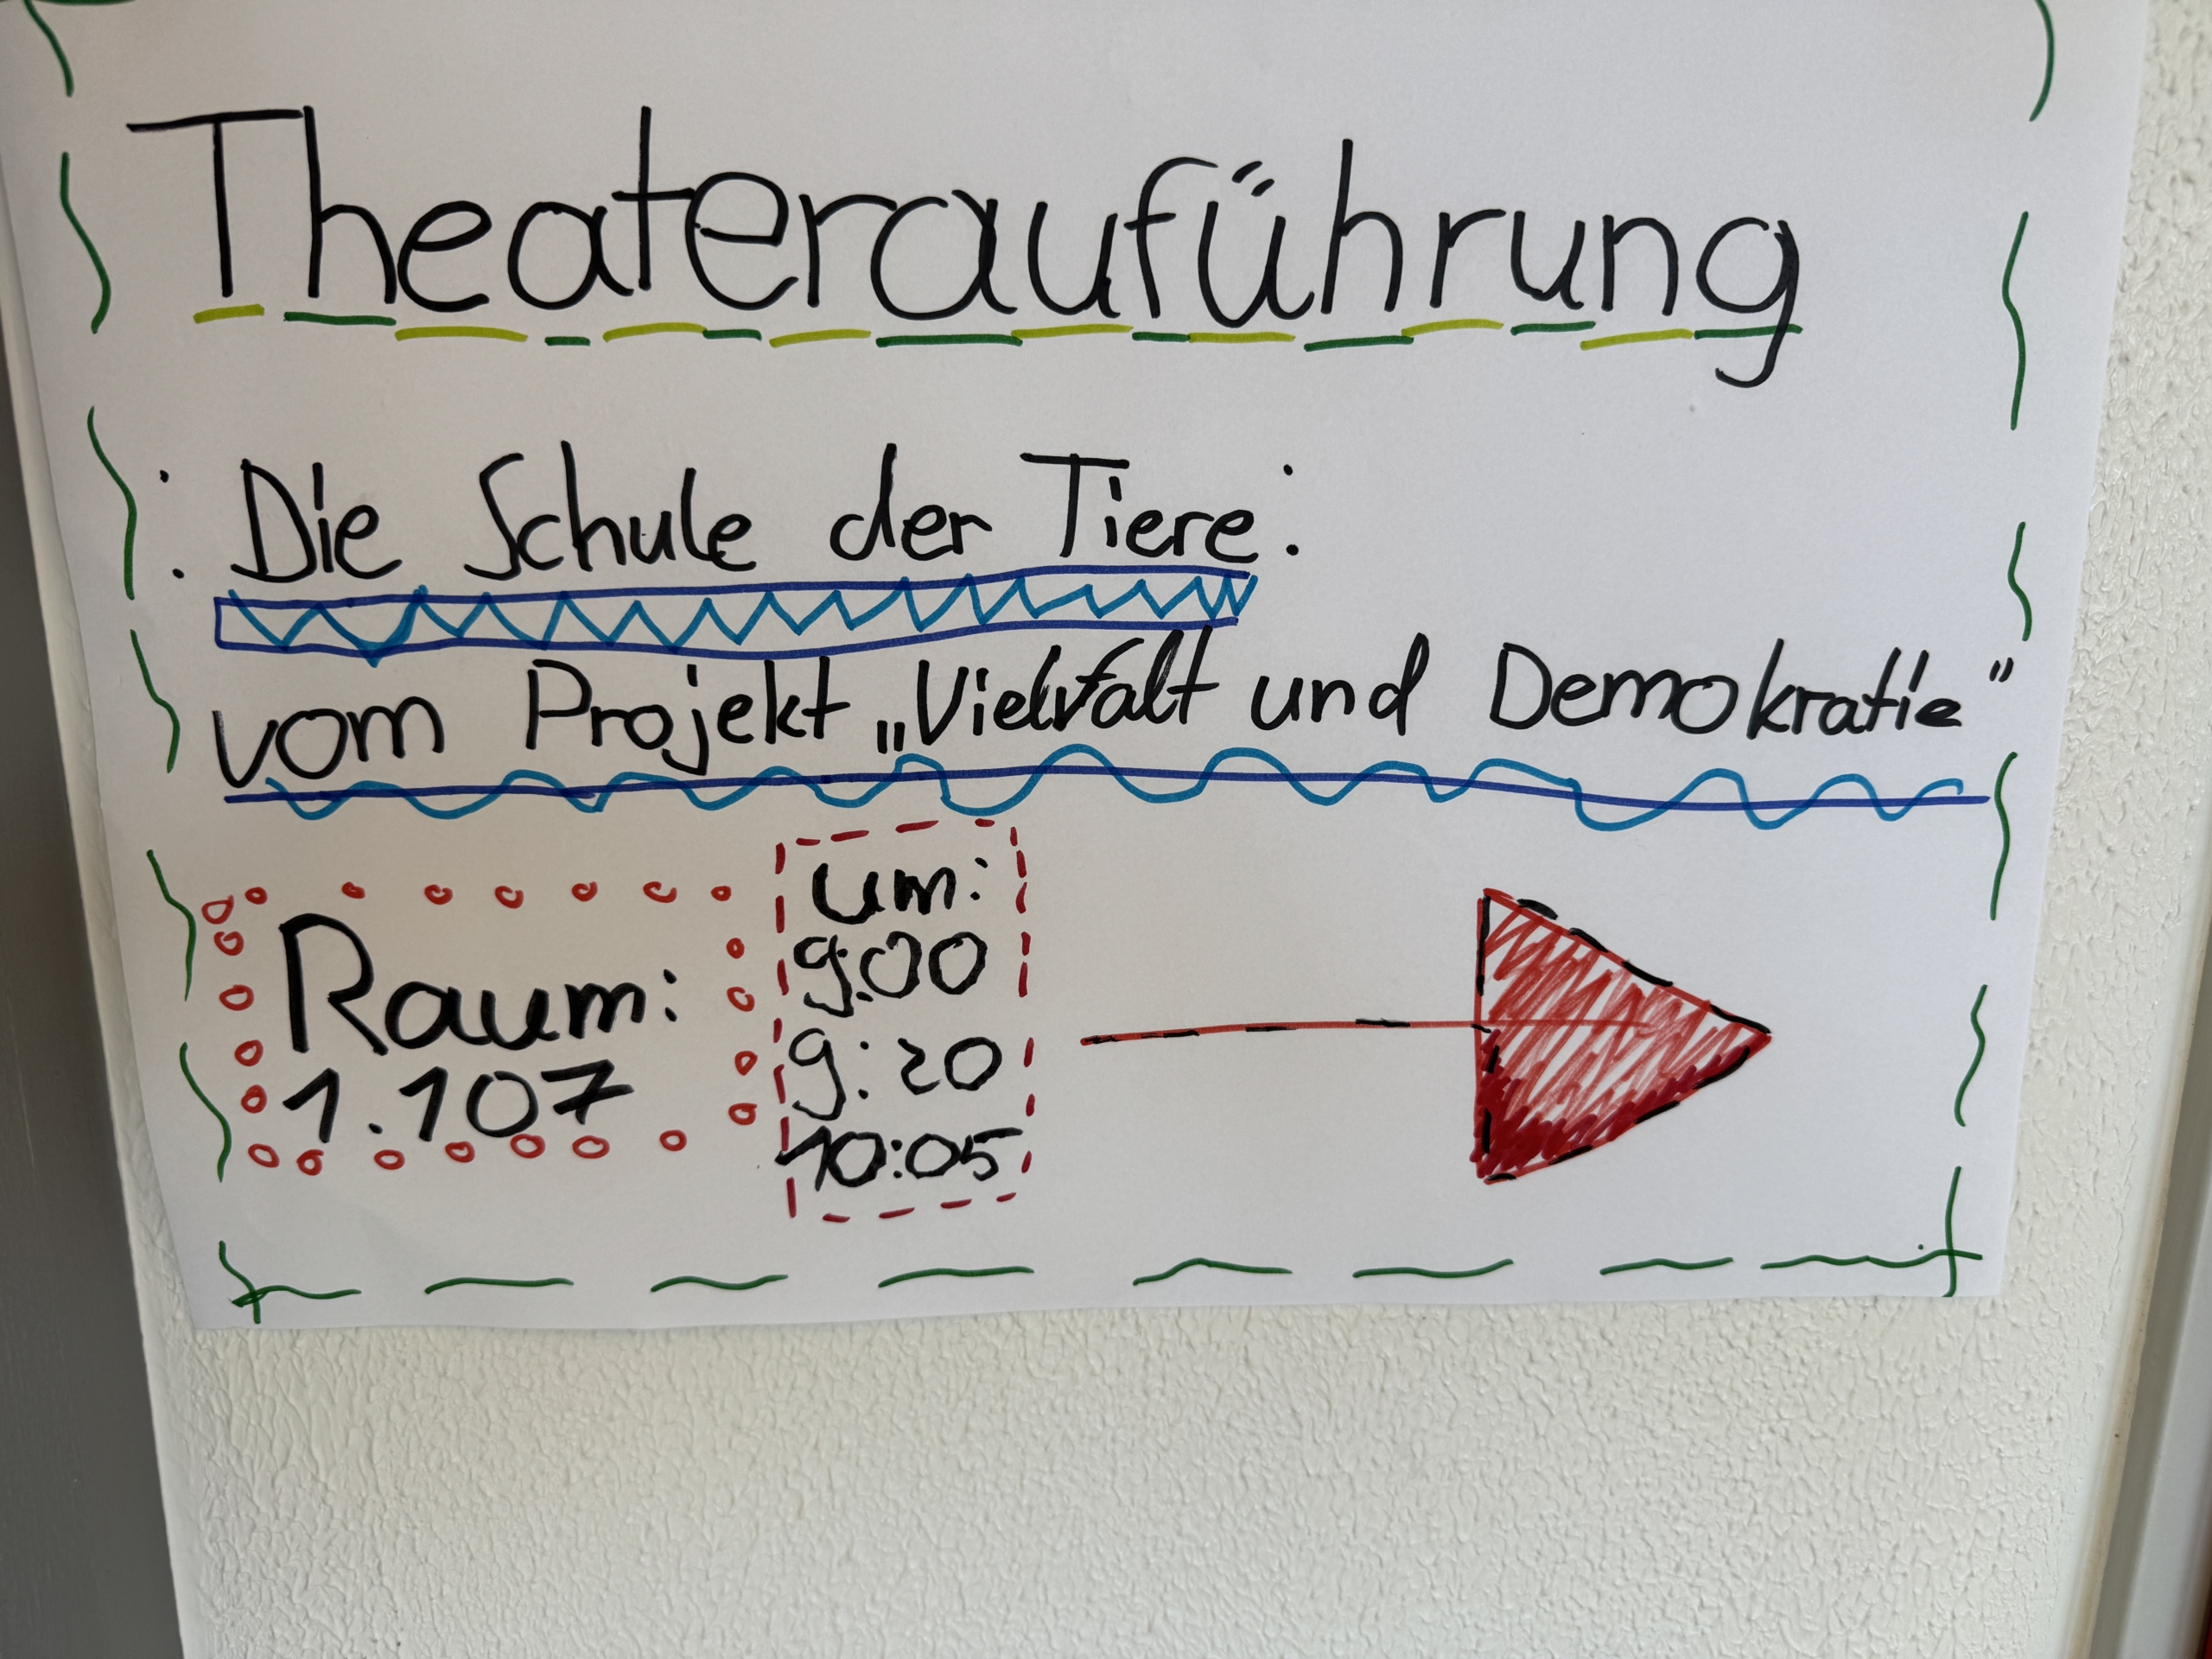 Theaterauführung
: Die Schule der Tiere:
vom Projekt „Vielfalt und Demokratie"
Raum:
1.107
um:
9:00
9:20
10:05